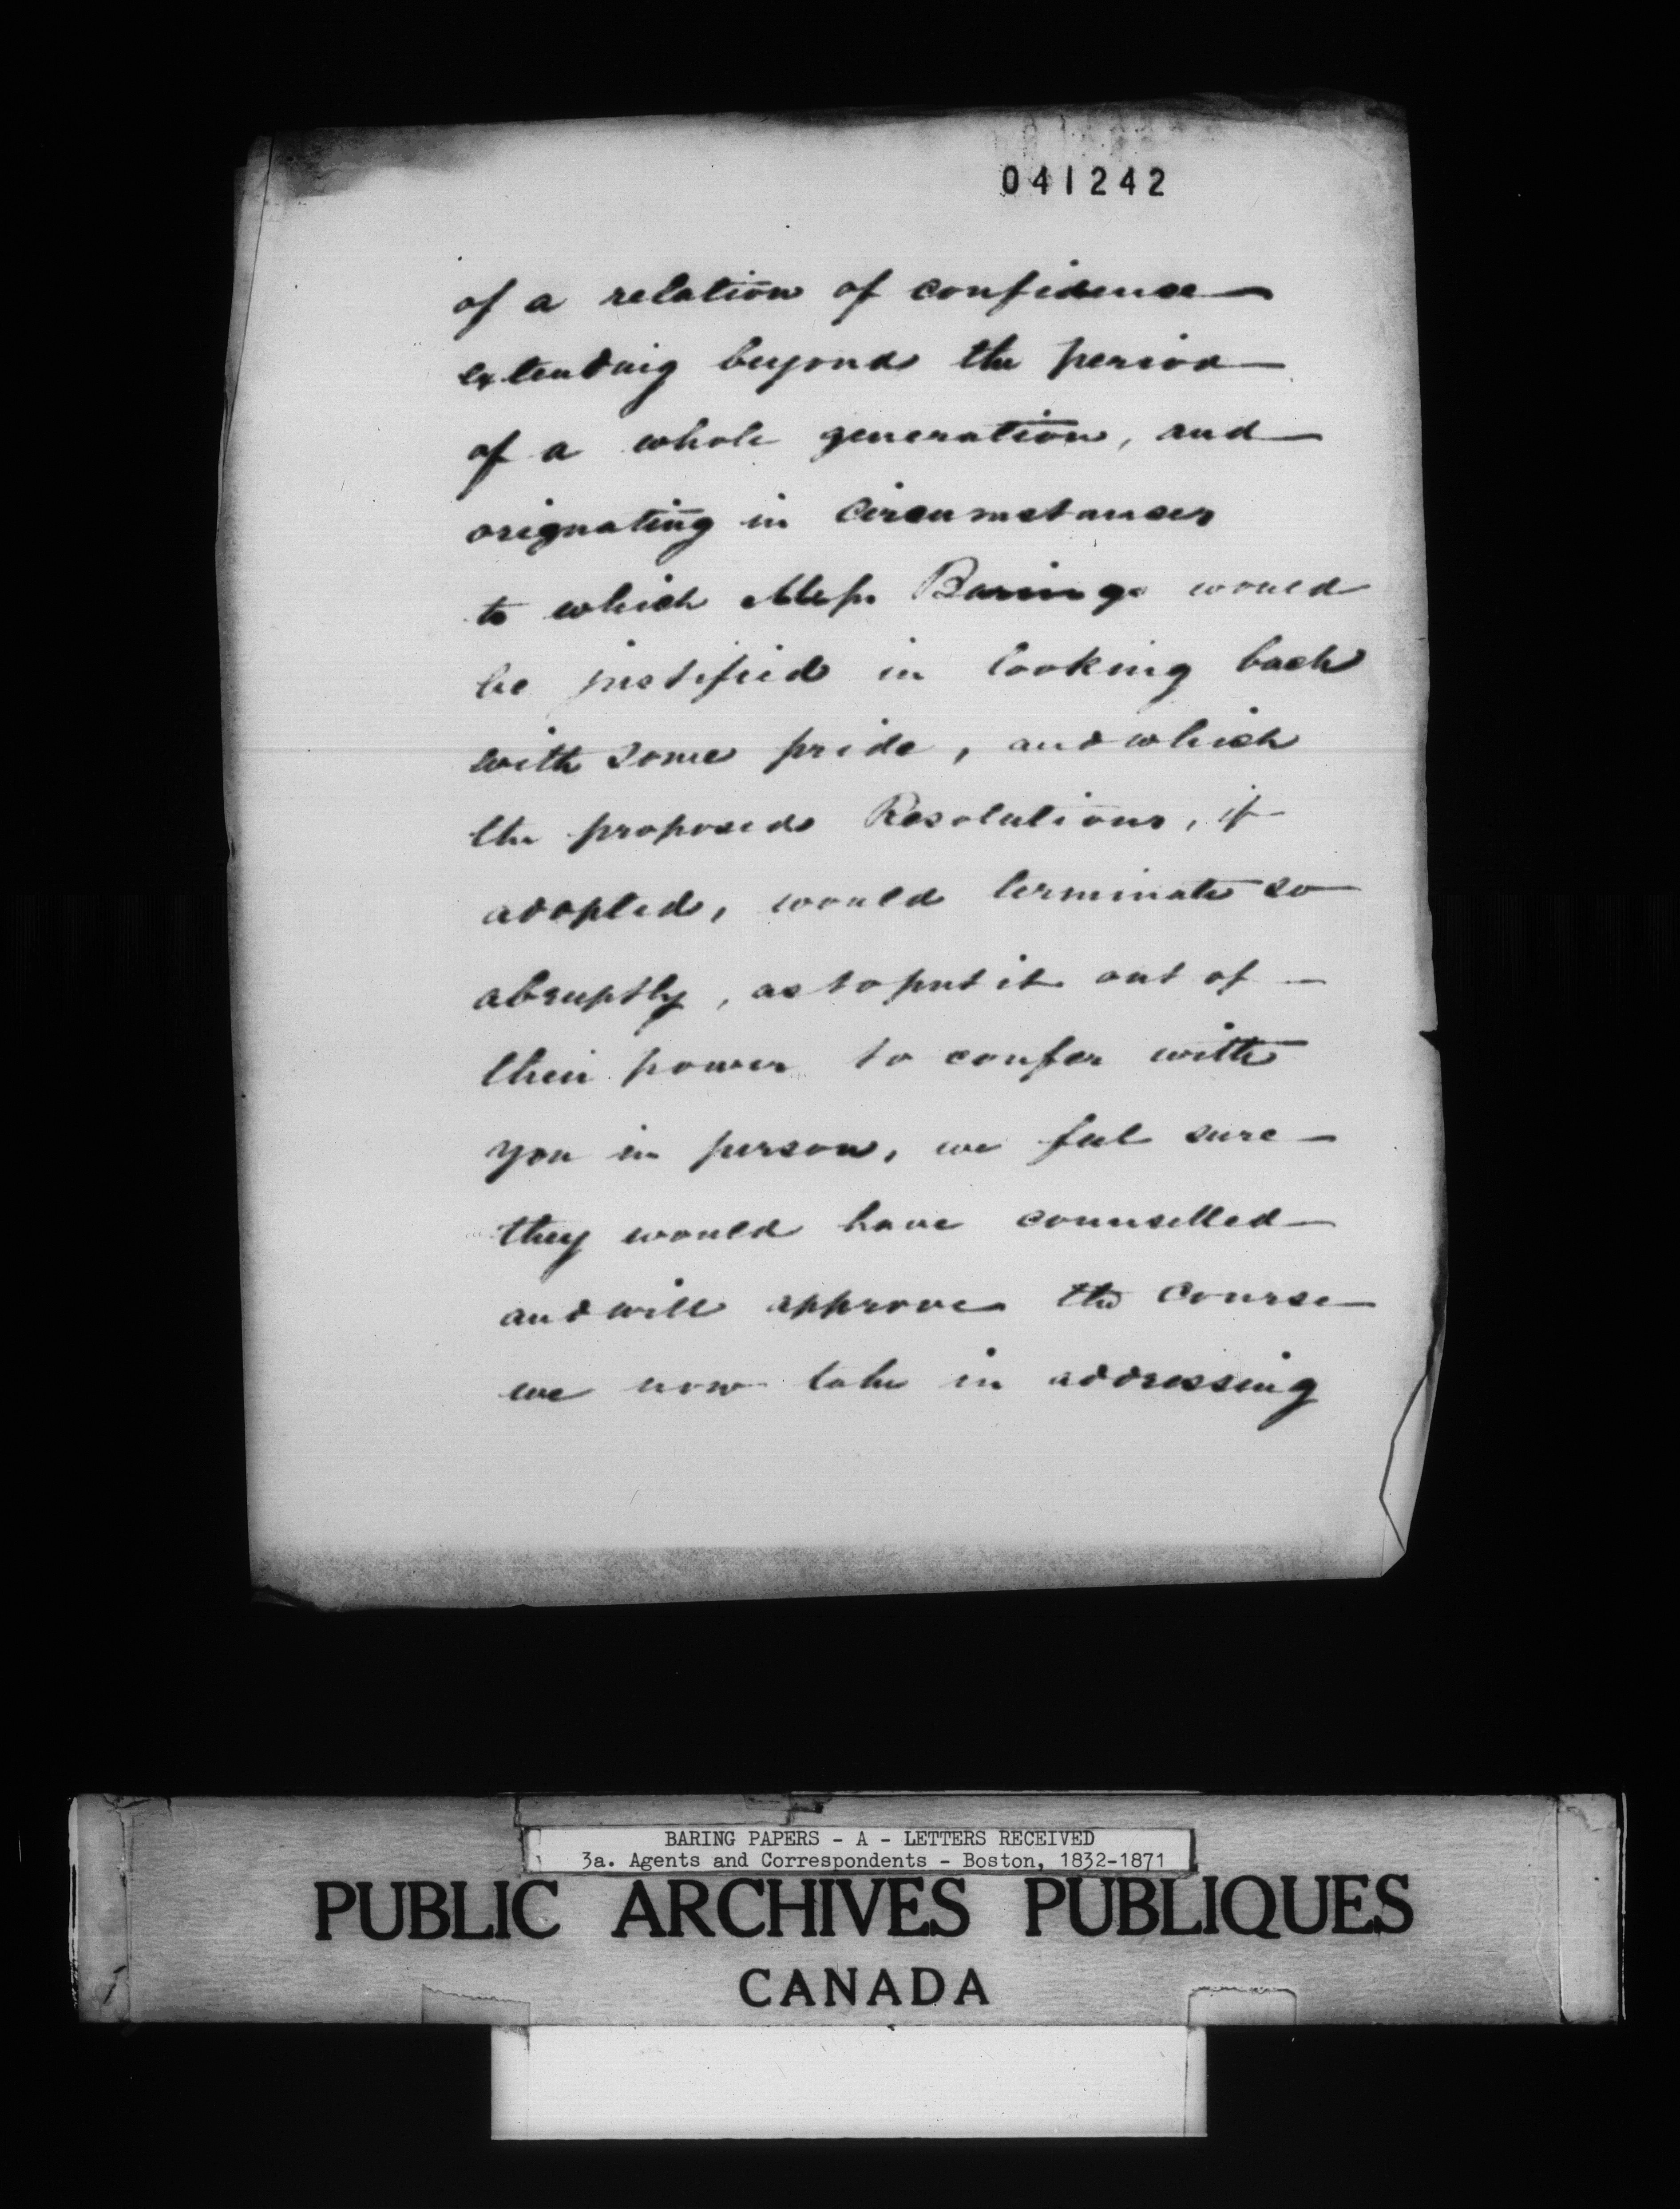 041242
of a relation of confidence
extending beyond the period
of a whole generation, and
orignating in Circumstances
to which Mess. Barings would
be justified in looking back
with some pride, and which
the proposed Resolutions, if
adopted, would terminate so
abruptly, as to put it out of
their power to confer with
you in person, we feel sure
they would have counselled
and will approve the Course
we now take in addressing
BARING PAPERS - A - LETTERS RECEIVED
3a. Agents and Correspondents - Boston, 1832-1871
PUBLIC ARCHIVES PUBLIQUES
CANADA